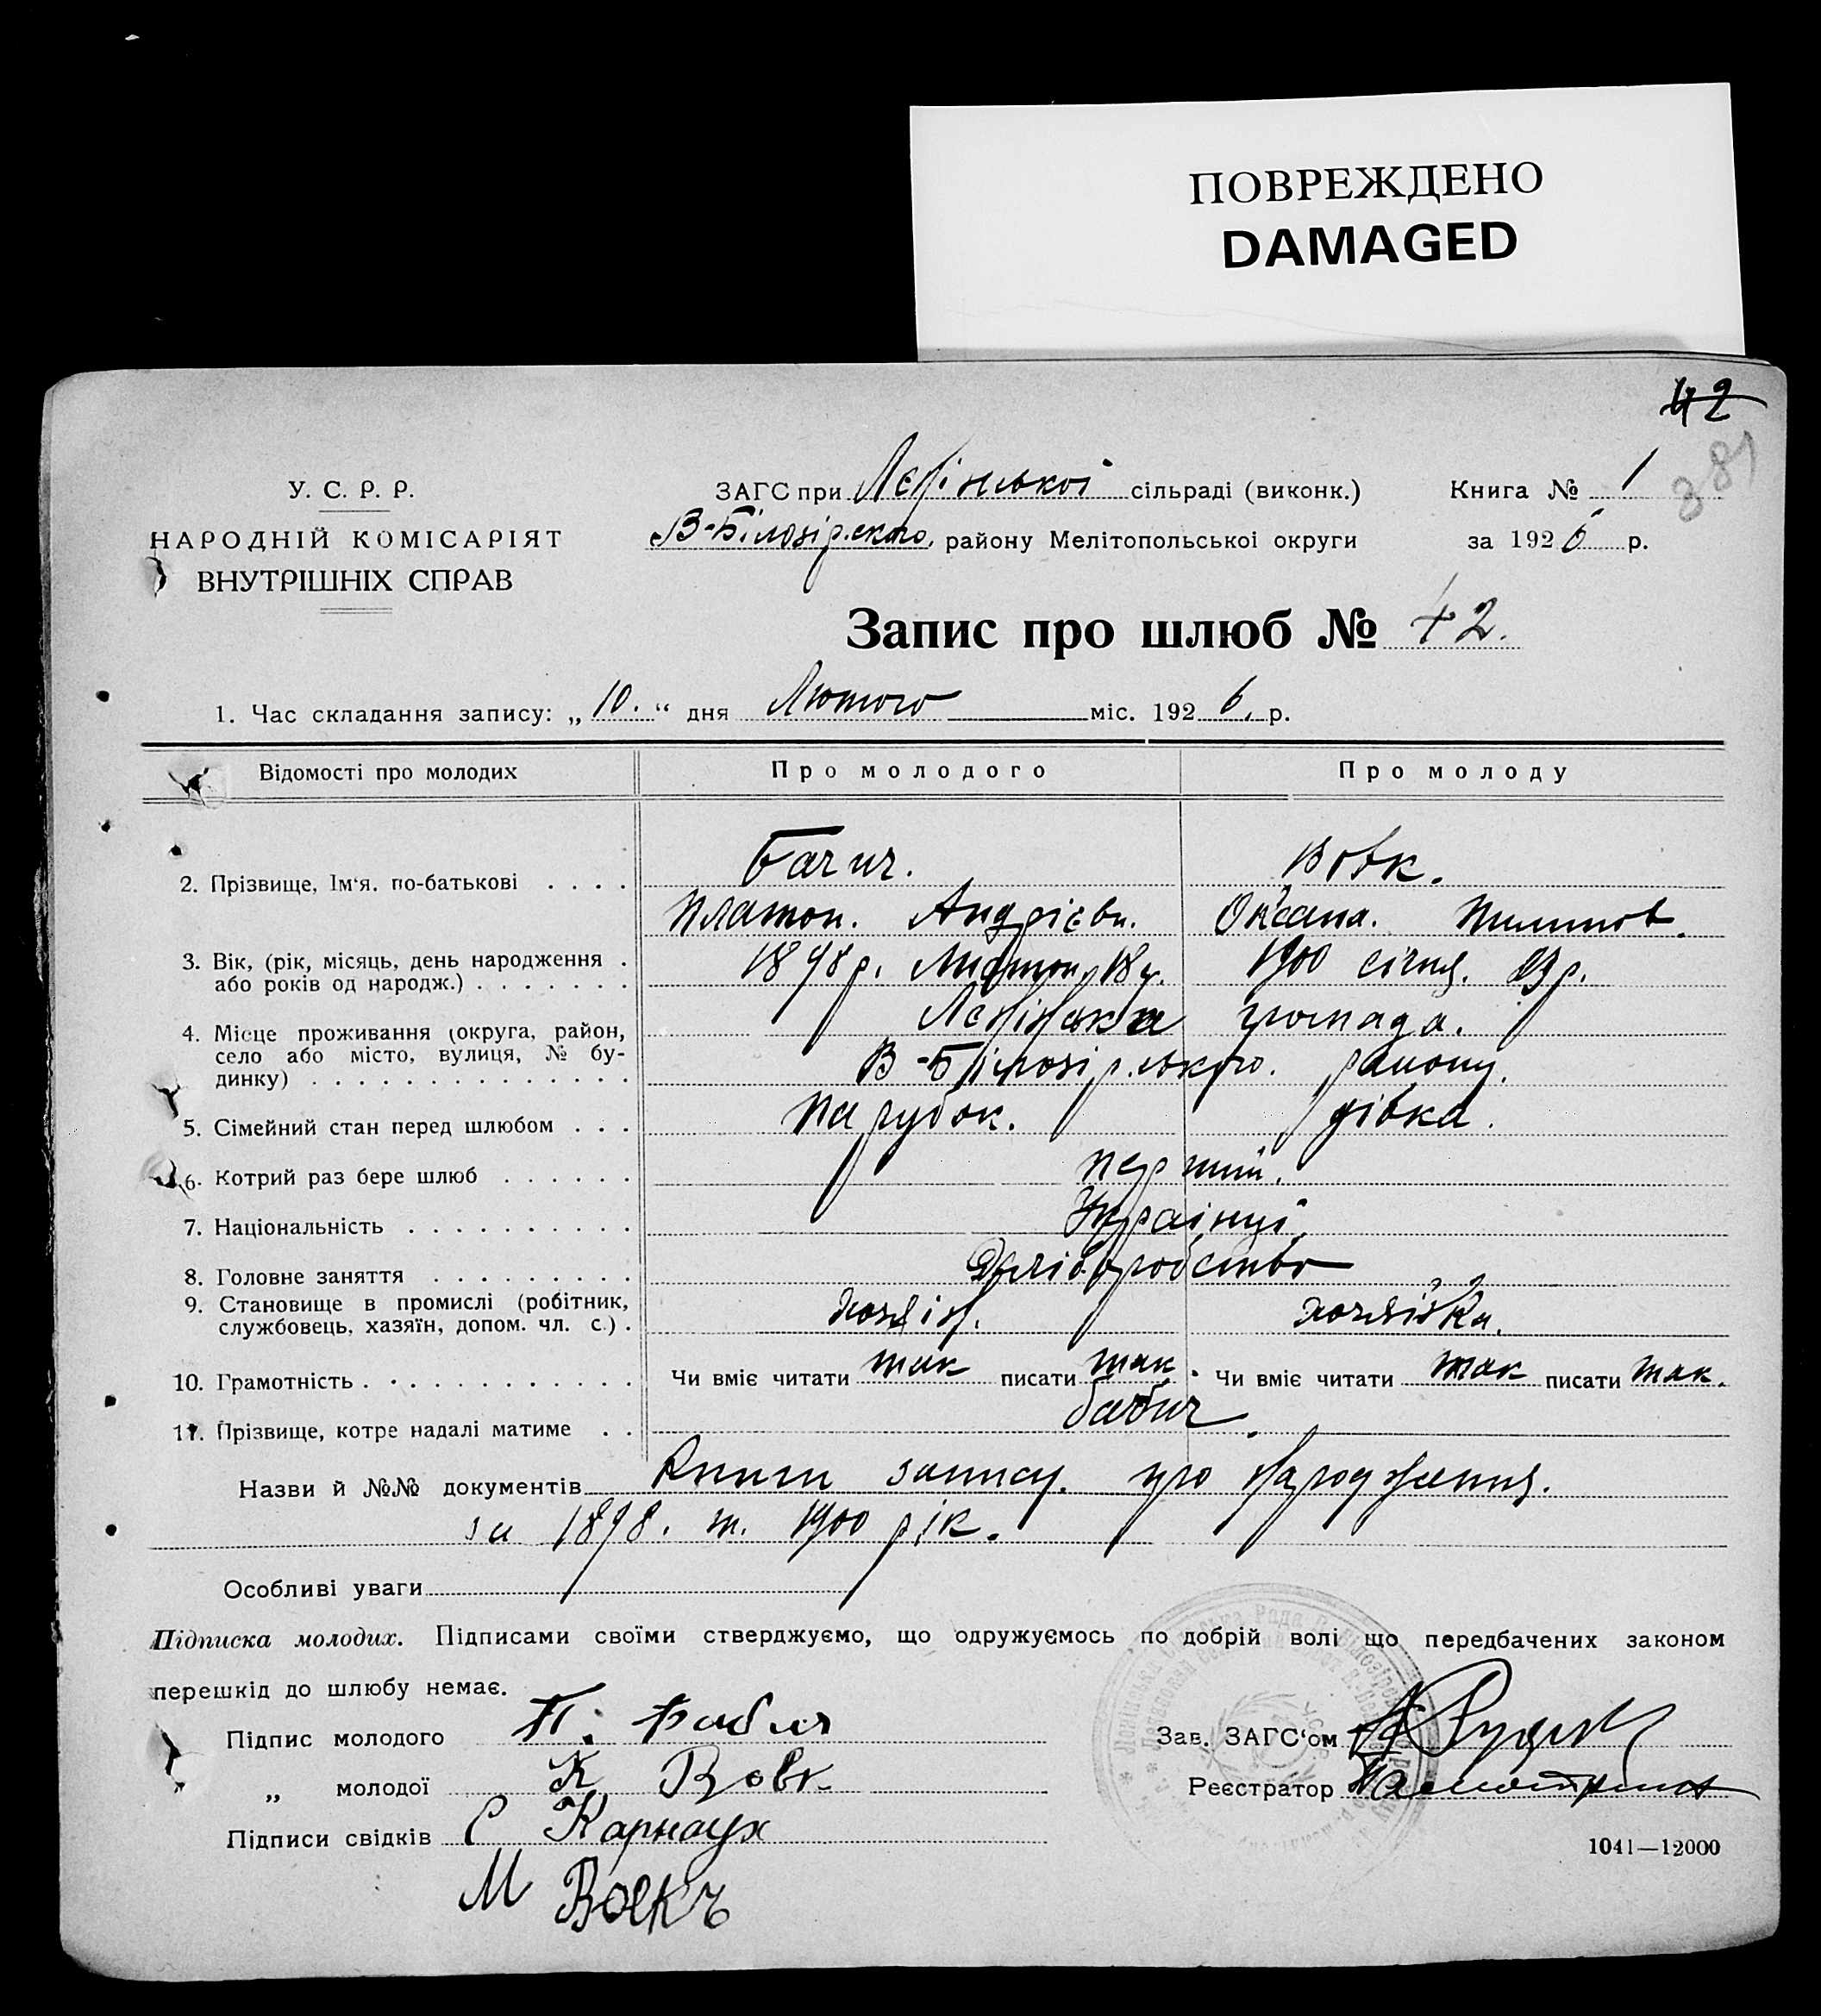 ПОВРЕЖДЕНО
DAMAGED
42
381
У. С. Р. Р.
НАРОДНІЙ КОМІСАРІЯТ
ВНУТРІШНІХ СПРАВ
ЗАГС при Лєнінської сільраді (виконк.)
Книга № 1
В-Білозірського району Мелітопольської округи
за 1926 р.
Запис про шлюб № 42.
1. Час складання запису: „10.“ дня Лютого міс. 1926. р.
Відомості про молодих Про молодого Про молоду
2. Прізвище, Ім‘я. по-батькові . . . . Бабич. Вовк.
Платон. Андрієв. Оксана. Пилипов.
3. Вік, (рік, місяць, день народження . 1898 р. Листоп. 18 1900 січня. 23 р.
або років од народж.) . . . . . . .
4. Місце проживання (округа, район, Лєнінська громада.
село або місто, вулиця, № бу-
динку) . . . . . . . . . . . . . . В-Білозірського. району.
5. Сімейний стан перед шлюбом . . . парубок. дівка.
6. Котрий раз бере шлюб . . . . . . перший.
7. Національність . . . . . . . . . . Українці
8. Головне заняття . . . . . . . . . хліборобство
9. Становище в промислі (робітник, хозяін. хозяйка.
службовець, хазяїн, допом. чл. с.) .
10. Грамотність . . . . . . . . . . . . Чи вміє читати так писати так. Чи вміє читати так писати так.
11. Прізвище, котре надалі матиме . . бабич.
Назви й №№ документів Книги запису. про народження.
за 1898. т. 1900 рік.
Особливі уваги
Підписка молодих. Підписами своїми стверджуємо, що одружуємось по добрій волі що передбачених законом
перешкід до шлюбу немає.
Підпис молодого П. Бабич
Зав. ЗАГС‘ом
„ молодої К Вовк
Реєстратор
Підписи свідків С Карнаух
1041—12000
М Волкъ